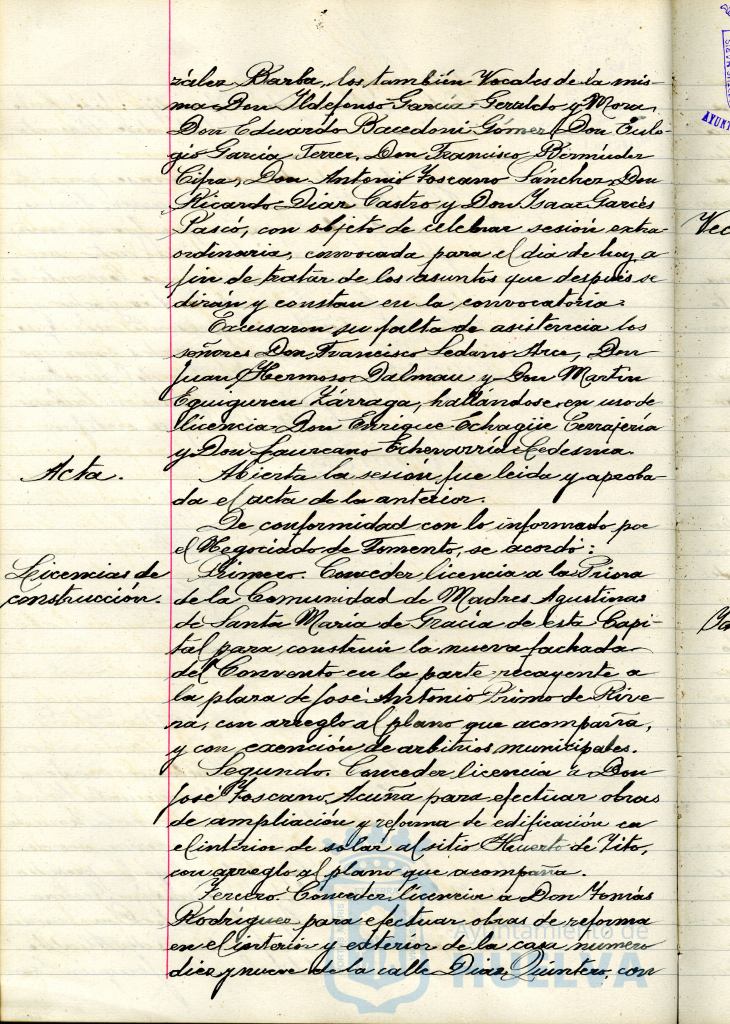 zález Barba, los también Vocales de la mis-
ma Don Ildefonso García Geraldo y Mora,
Don Eduardo Bacedoni Gómez, Don Eulo-
gio García Terrer, Don Francisco Bermúdez
Cifra, Don Antonio Toscano Sánchez, Don
Ricardo Diaz Castro y Don Isaac Garcés
Pascó, con objeto de celebrar sesión extra-
ordinaria, convocada para el dia de hoy a
fin de tratar de los asuntos que después se
dirán y constan en la convocatoria.
Excusaron su falta de asistencia los
señores Don Francisco Sedano Arce, Don
Juan Hermoso Dalmau y Don Martin
Eguiguren Zárraga, hallándose en uso de
licencia Don Enrique Echagüe Cerrajería
y Don Laureano Echevarría Ledesma.
Acta.
Abierta la sesión fue leida y aproba-
da el acta de la anterior.
De conformidad con lo informado por
el Negociado de Fomento, se acordó:
Licencias de
construcción.
Primero. Conceder licencia a la Priora
de la Comunidad de Madres Agustinas
de Santa Maria de Gracia de esta Capi-
tal para construir la nueva fachada
del Convento en la parte recayente a
la plaza de José Antonio Primo de Rive-
ra, con arreglo al plano que acompaña,
y con exención de arbitrios municipales.
Segundo. Conceder licencia a Don
José Toscano Acuña para efectuar obras
de ampliación y reforma de edificación en
el interior de solar al sitio Huerto de Tito,
con arreglo al plano que acompaña.
Tercero. Conceder licencia a Don Tomás
Rodriguez para efectuar obras de reforma
en el interior y exterior de la casa numero
diez y nueve de la calle Diaz Quintero, con
Ayuntamiento de
HUELVA